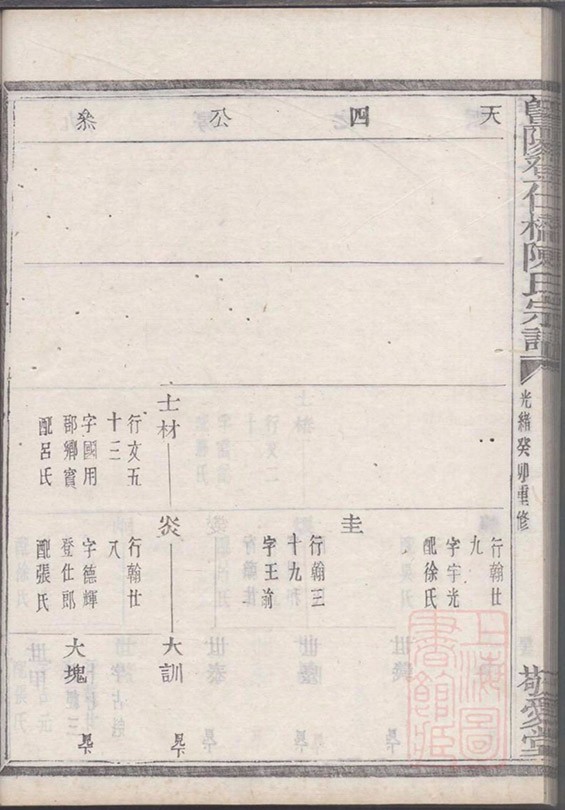 暨陽登仕橋陳氏宗譜
光緒癸卯重修
敬愛堂
天四公系
行翰廿
九
字宇光
配徐氏
圭
行翰三
十九
字王前
士材
行文五
十三
字國用
郡鄉賓
配呂氏
炎
行翰廿
八
字德輝
登仕郎
配張氏
大訓
見下
大塊
見下
上海圖書館藏